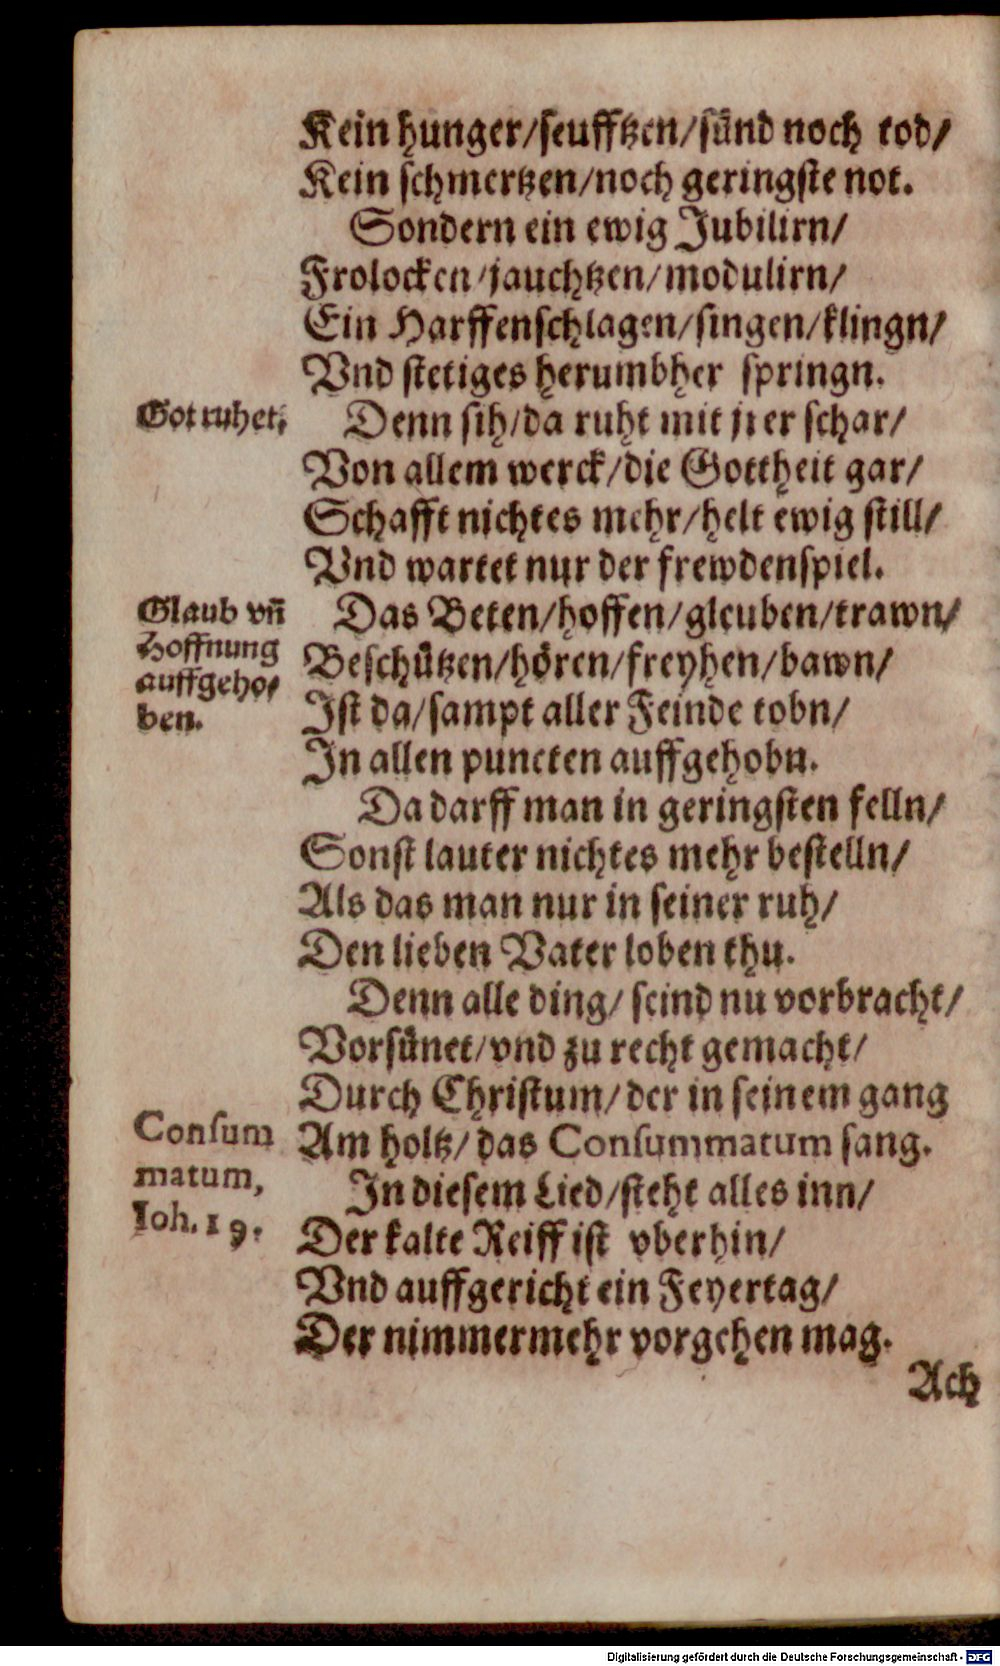 Kein hunger/seufftzen/sünd noch tod/
Kein schmertzen/noch geringste not.
Sondern ein ewig Jubilirn/
Frolocken/jauchtzen/modulirn/
Ein Harffenschlagen/singen/klingn/
Vnd stetiges herumbher springn.
Got ruhet.
Denn sih/da ruht mit jrer schar/
Von allem werck/die Gottheit gar/
Schafft nichtes mehr/helt ewig still/
Vnd wartet nur der frewdenspiel.
Glaub vñ
Hoffnung
auffgeho/
ben.
Das Beten/hoffen/gleuben/trawn/
Beschützen/hören/freyhen/bawn/
Ist da/sampt aller Feinde tobn/
In allen puncten auffgehobn.
Da darff man in geringsten felln/
Sonst lauter nichtes mehr bestelln/
Als das man nur in seiner ruh/
Den lieben Vater loben thu.
Denn alle ding/ seind nu vorbracht/
Vorsünet/vnd zu recht gemacht/
Durch Christum/der in seinem gang
Am holtz/das Consummatum sang.
Consum
matum,
Ioh. 19.
In diesem Lied/steht alles inn/
Der kalte Reiff ist vberhin/
Vnd auffgericht ein Feyertag/
Der nimmermehr vorgehen mag.
Ach
Digitalisierung gefördert durch die Deutsche Forschungsgemeinschaft - DFG